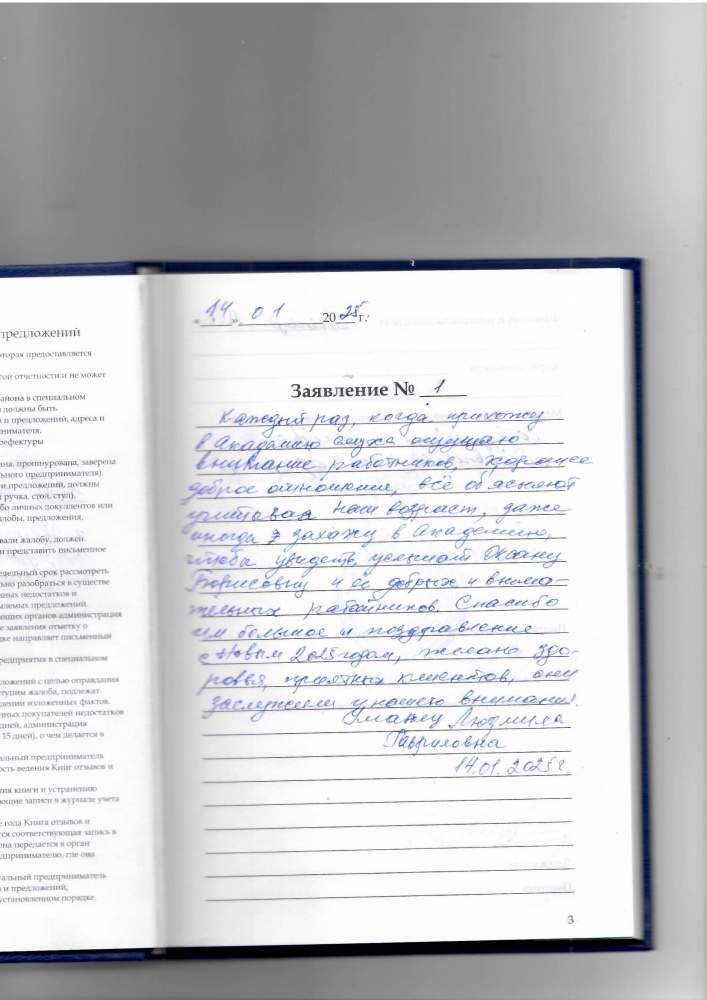 предложений
оторая предоставляется
той отчетности и не может
айона в специальном
и должны быть
о и предложений, адреса и
нимателя,
рефектуры
на, пронумерована, заверена
льного предпринимателя).
и предложений, должны
(ручка, стол, стул).
бо личных документов или
алобы, предложения,
вали жалобу, должен
и представить письменное
едельный срок рассмотреть
ьно разобраться в существе
нных недостатков и
млемых предложений.
ующих органов администрация
е заявления отметку о
дке направляет письменный
редприятия в специальном
ложений с целью оправдания
ступим жалоба, подлежат
дении изложенных фактов.
нных покупателей недостатков
дней, администрация
15 дней), о чем делается в
альный предприниматель
ость ведения Книг отзывов и
ния книги и устранению
ющие записи в журнале учета
е года Книга отзывов и
тся соответствующая запись в
она передается в орган
дпринимателю, где она
уальный предприниматель
о и предложений,
установленном порядке.
«14» 01 2025 г.
Заявление № 1
Каждый раз, когда прихожу
в Академию слуха ощущаю
внимание работников, хорошее
доброе отношение, всё объясняют
учитывая наш возраст, даже
иногда я захажу в Академию,
чтобы увидеть, услышать Оксану
Борисовну и её добрых и внима-
тельных работников. Спасибо
им большое и поздравление
с Новым 2025 годом, желаю здо-
ровья, приятных клиентов, они
заслужили у нашего внимания.
Людмила
Гавриловна
14.01.2025г.
3